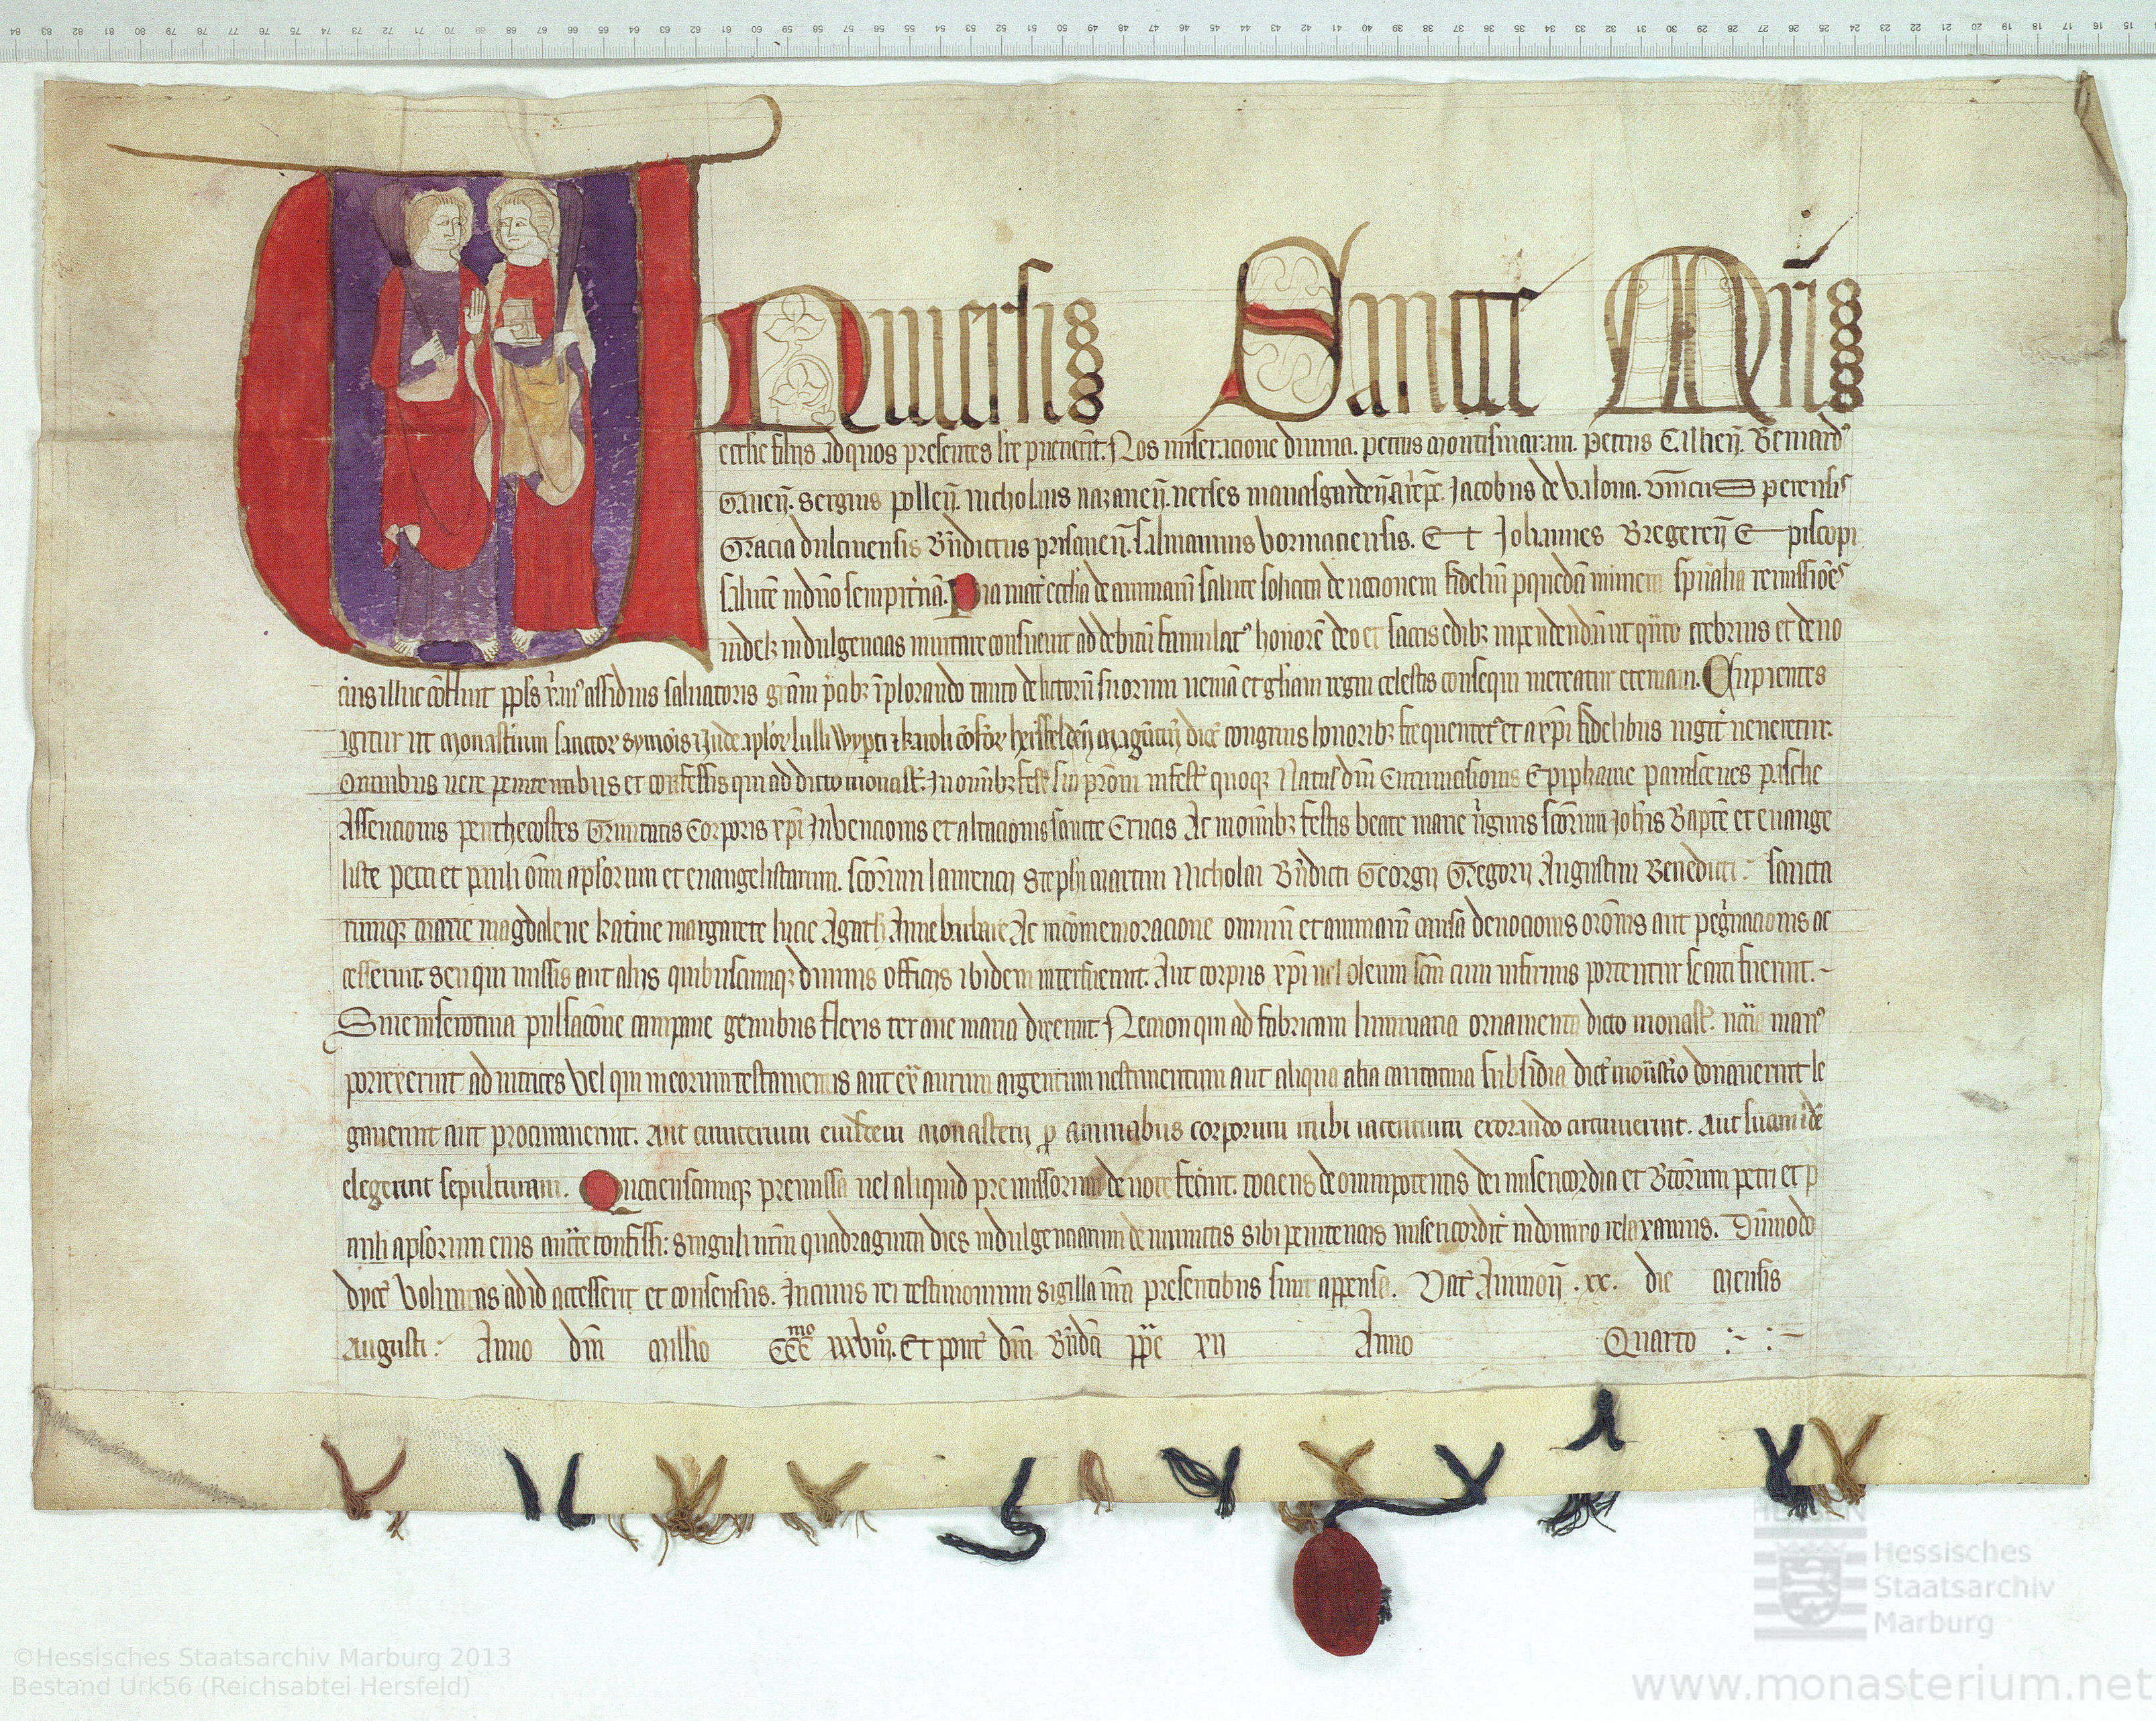 Universis Sancte Matris
eccl̄ie filiis ad quos presentes lr̄e pervenerīt. Nos miseracione divina. petrus Montismarani. petrus Callien̄. Bernard⁹
Ganen̄. Sergius pollen̄. Nicholaus nazaren̄. nerses manasgarden̄ Ar̄ep̄i. Jacobus de Valona. Vīncencius petensis
Gracia dulcinensis Bn̄dictus prisanen̄. salmannus Vormaciensis. Et Johannes Bregeren̄ Episcopi
salutē in dn̄o sempit̄nā. Pia mat̄ eccl̄ia de animarū salute solicita devocionem fideliū p quedā munera sp̄ualia remissiōes
videlz indulgencias invitare consuevit ad debitū famulat⁹ honorē deo et sacris edibz inpendendū ut quāto crebrius et devo
cius illuc cōfluit pp̄ls xr̄ian⁹ assiduis salvatoris gr̄am p̄cibz īplorando tanto delictorū suorum veniā et gl̄iam regni celestis consequi mereatur eternam. Cupientes
igitur ut Monastiū sanctor Symōis et Jude ap̄lor lulli Wyp̄ti et karoli cōfor hersfelden̄ Magūtin̄ dioc̄ congruis honoribz frequentet̄ et a xp̄i fidelibus iugit̄ veneretur.
Omnibus vere penitentibus et confessis qui ad dictū monast̄. In omībz fest̄ sui pr̄oni in fest̄ quoqz Natal̄ dn̄i Circumcisionis Epiphanie parasceues pasche
Assencionis penthecostes Trinitatis Corporis xp̄i Invencionis et altacionis sancte Crucis Ac in omībz festis beate marie v̄ginis sc̄orum Joh̄is Bapt̄e et evange
liste petri et pauli om̄ ap̄lorum et evangelistarum. sc̄orum laurencii Steph̄i martini Nicholai Bn̄dicti Georgii Gregorii Augustini Benedicti: sancta
rumqz Marie magdalene kat̄ine margarete lucie Agath̄ Anne barbare Ac in cōmemoracione omniū et animarū causa devocionis or̄onis aut peg̃nacionis ac
cesserint. seu qui missis aut aliis quibuscumqz divinis officiis ibidem interfuerint. Aut corpus xp̄i vel oleum sc̄m cum infirmis portentur secuti fuerint.
Sive in serotina pulsacōne campane genibus flexis ter ave maria dixerint. Necnon qui ad fabricam luminaria ornamenta dicto monast̄. man⁹
porrexerint adiutrices Vel qui in eorum testamentis aut ext̄ aurum argentum vestimentum aut aliqua alia caritativa subsidia dict̄ monast̄io donaverint le
gaverint aut procuraverint. Aut cimiterium eiusdem Monasterii p̱ animabus corporum inibi iacencium exorando circuiverint. Aut suam ibidē
elegerint sepulturam. Quociescumqz premissa vel aliquid premissorum devote fec̄int. tociens de omnipotentis dei misericordia et Bt̄orum petri et p
auli ap̄lorum eius auct̄te confissi: singuli nr̄m quadraginta dies indulgenciarum de iniunctis sibi penitenciis misericordit̄ in domino relaxamus. Dūmodo
dyoc̄ Voluntas ad id accesserit et consensus. In cuius rei testimonium sigilla nr̄a presentibus sunt appensa. Dat̄ Avinion̄ .xx. die Mensis
Augusti: Anno dn̄i Millio CCC mo xxxviij. Et pont̄ dn̄i Bn̄dc̄i pp̄e xij Anno Quarto
©Hessisches Staatsarchiv Marburg 2013
Bestand Urk56 (Reichsabtei Hersfeld)
HESSEN
Hessisches
Staatsarchiv
Marburg
www.monasterium.net